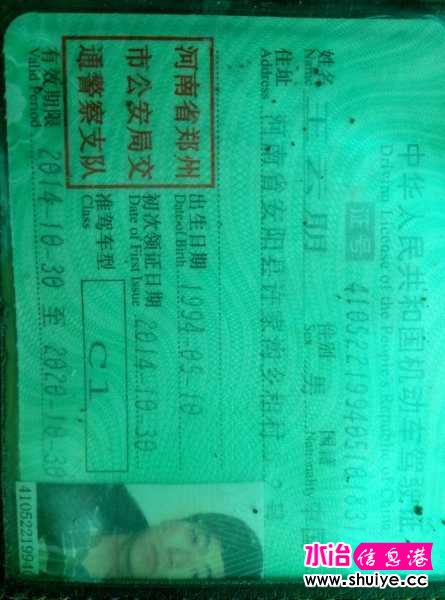 中华人民共和国机动车驾驶证
Driving License of the People's Republic of China
证号
姓名
Name
性别 男
Sex
国籍
Nationality
住址
Address
河南省安阳县许家沟乡
出生日期 1994-05-10
Date of Birth
河南省郑州
市公安局交
通警察支队
初次领证日期 2014-10-30
Date of First Issue
准驾车型 C1
Class
有效期限 2014-10-30 至 2020-10-30
Valid Period
41052219940
水冶信息港
www.shuiye.cc